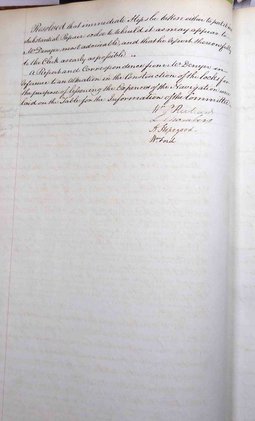 Resolved that immediate Steps be taken either to put it in
substantial Repair or else to rebuild it as may appear to
Mr Dempsey most advisable, and that he report thereon fully
to the Clerk as early as possible
A Report and Correspondence from Mr Dempsey in
reference to an alteration in the Construction of the locks for
the purpose of lessening the Expenses of the Navigation was
laid on the Table for the Information of the Committee
Wm
A Hopegood
Wm Ford